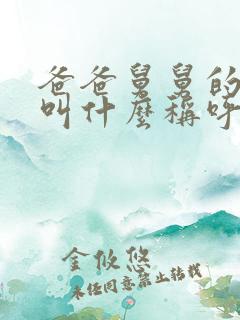 爸爸舅舅的
叫什麼稱呼
金攸悠
未經同意禁止轉載